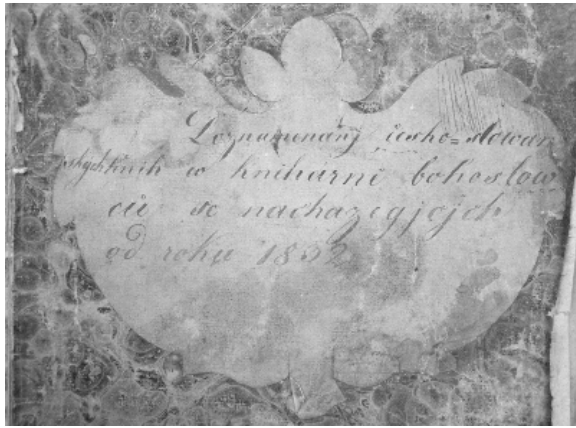 Poznamenánj česko=slowan
skych knih w knihárni bohoslow
ců se nacházegjcjch
od roku 1852